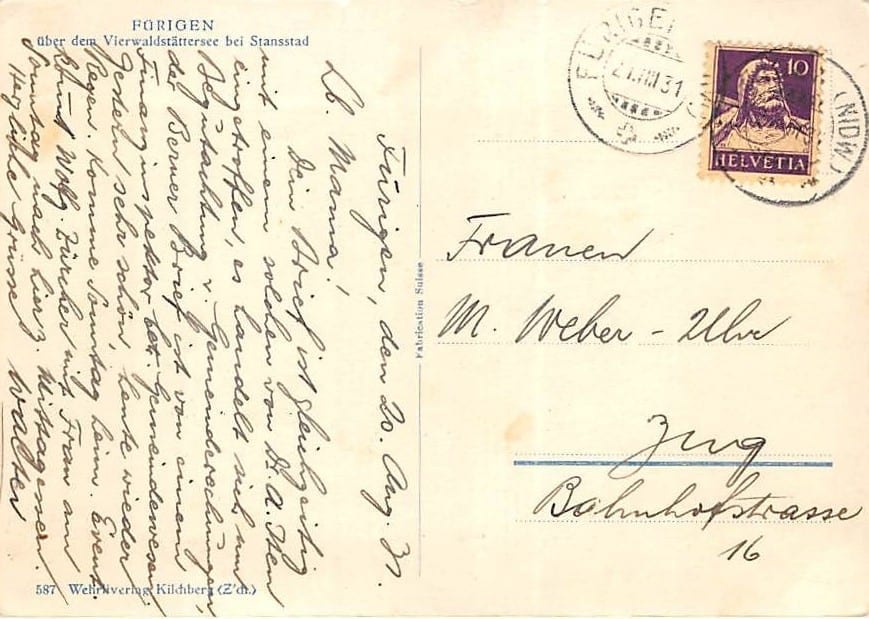 FÜRIGEN
über dem Vierwaldstättersee bei Stansstad
Fürigen, den 20. Aug. 31.
Lb. Mamma!
Dein Brief ist gleichzeitig
mit einem solchen von Dr. A. Them
eingetroffen, es handelt sich um
Begutachtung v. Gemeinderechnungen,
der Berner Brief ist von einem
Finanzinspektor betr. Gemeindewesen.
Gestern sehr schön, heute wieder
Regen. Komme Sonntag heim. Event.
kommt Wolfg. Zürcher mit Frau am
Sonntag nach hier z. Mittagessen.
Herzliche Grüsse Walter
587 Wehrliverlag, Kilchberg (Z'ch.)
Fabrication Suisse
FÜRIGEN
21.VIII.31
(NIDW.)
10
HELVETIA
Frauen
M. Weber - Uhr
Zug
Bahnhofstrasse
16